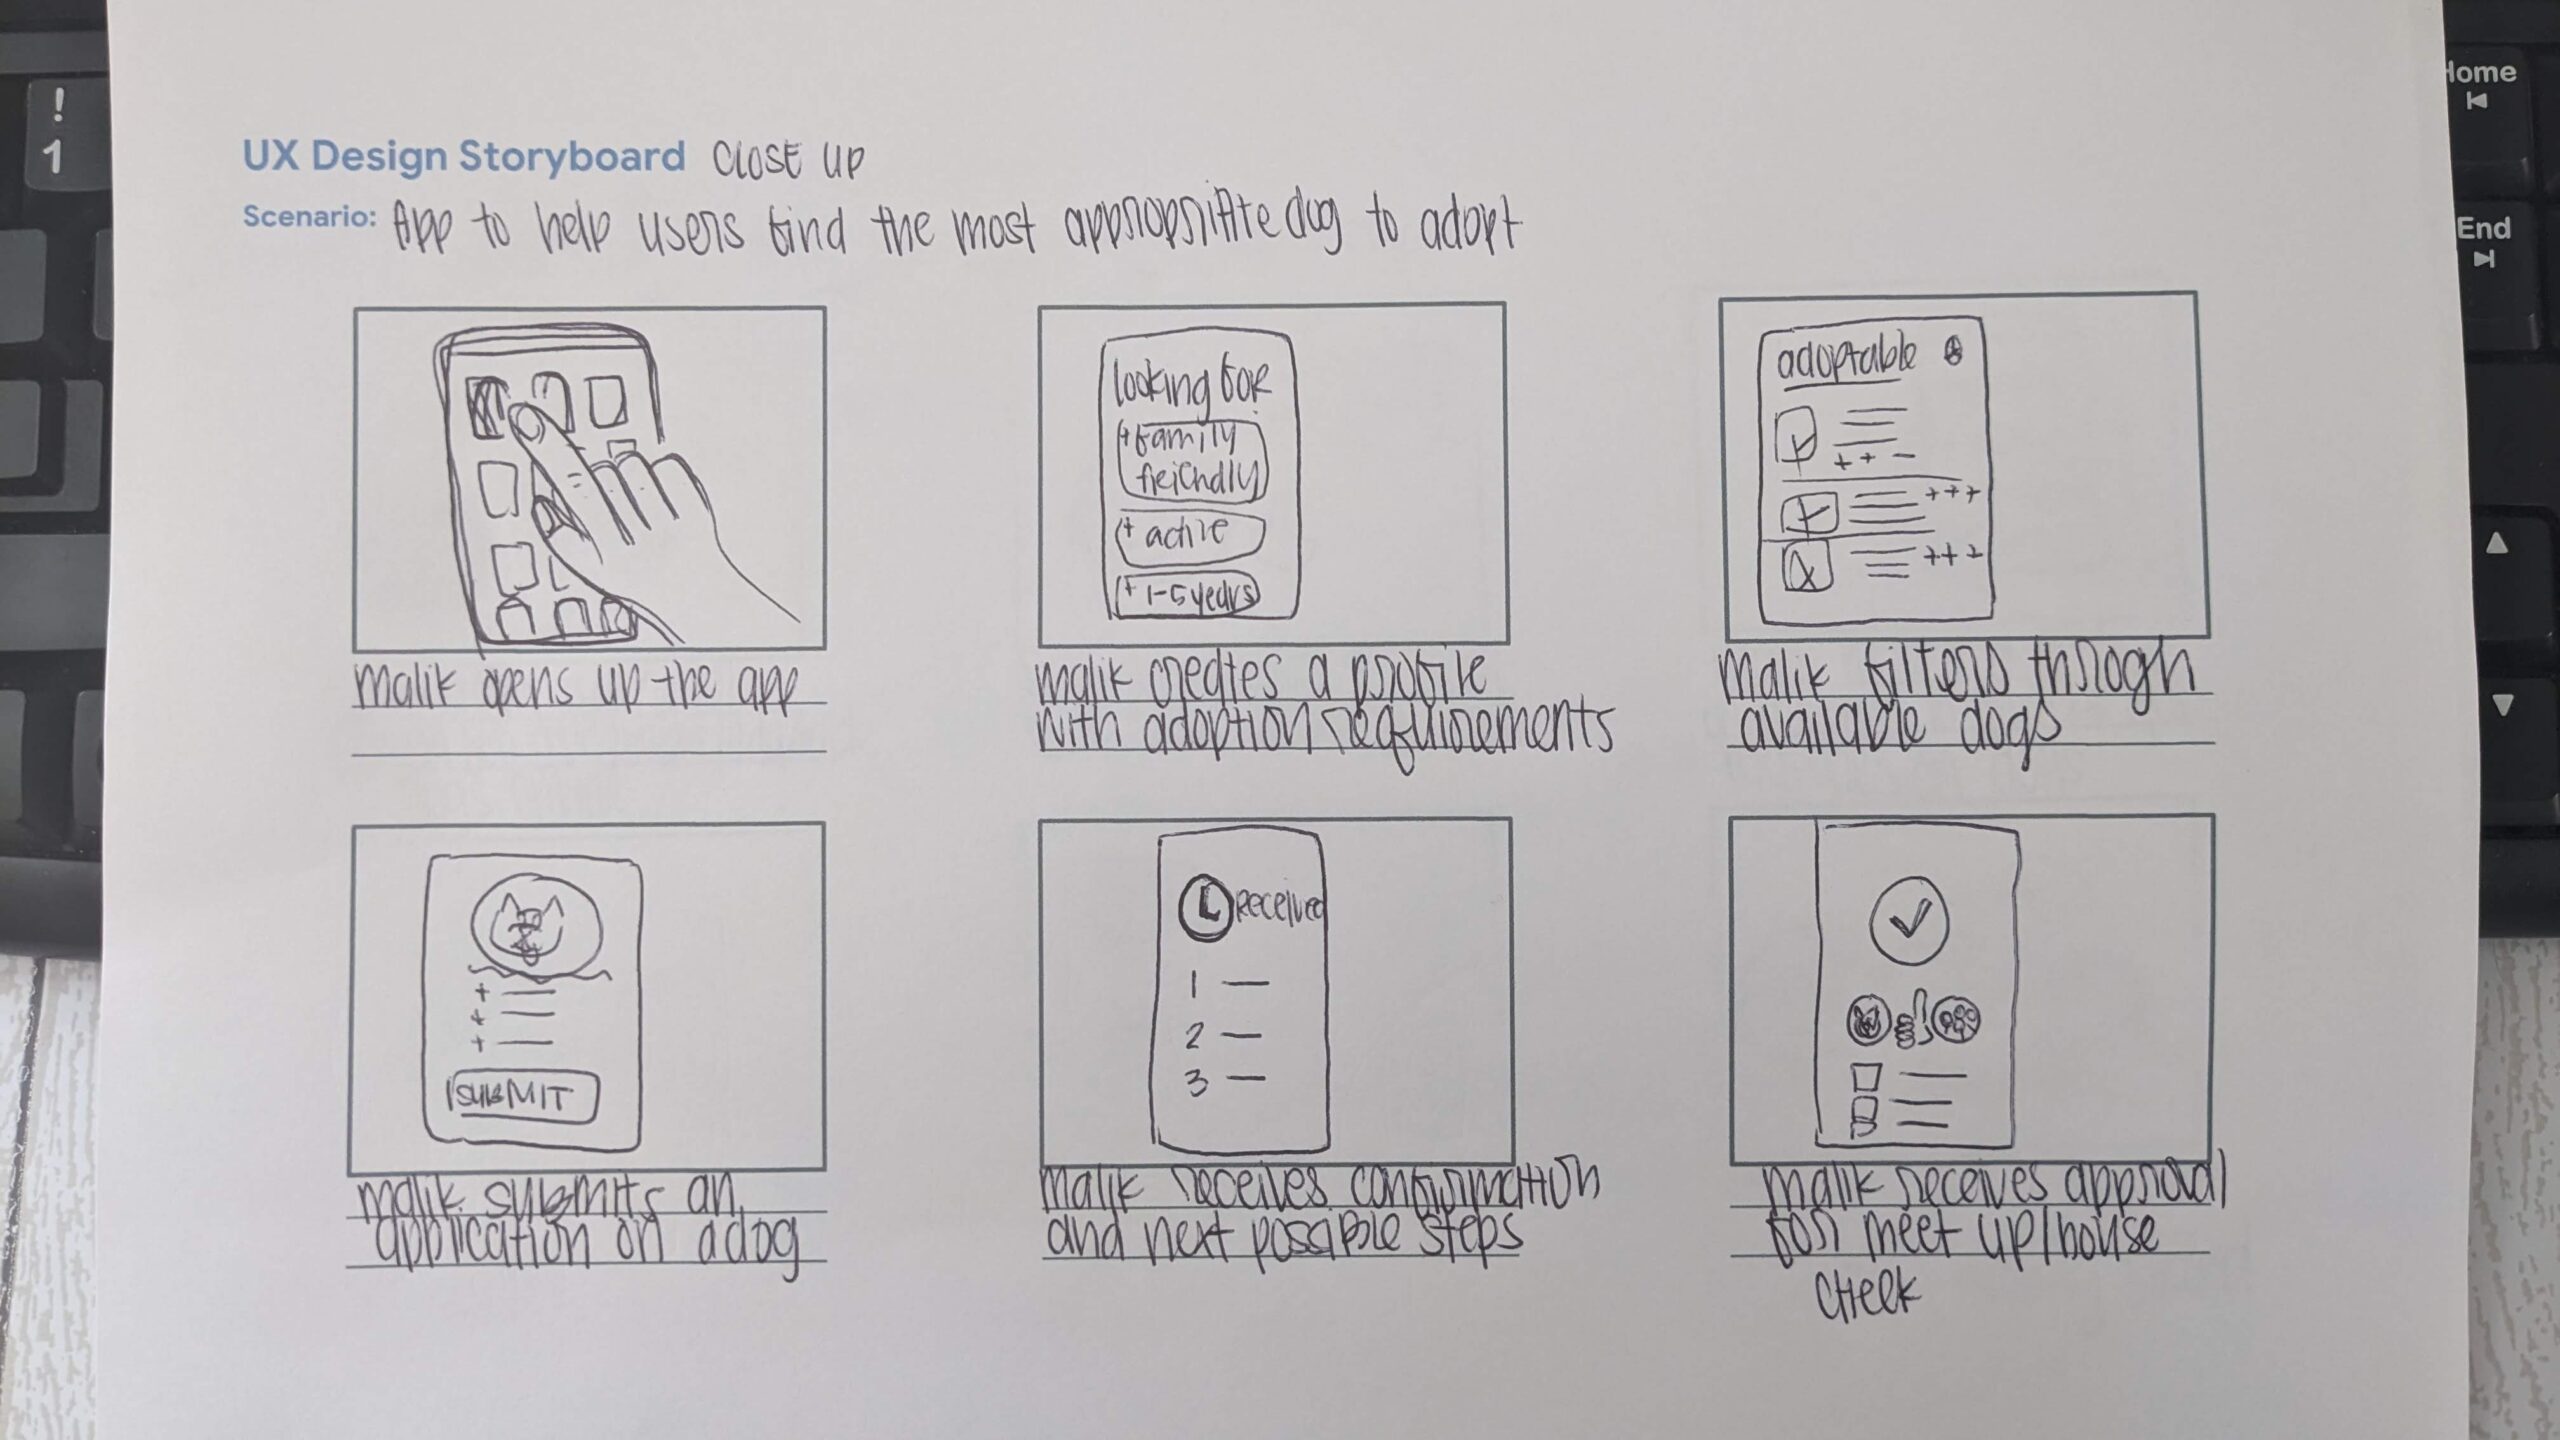 !
1
Home
End
UX Design Storyboard CLOSE UP
Scenario: App to help users find the most appropriate dog to adopt
looking for
+ family
freindly
+ active
+ 1-5 years
adoptable
+ + -
+++
+++
malik opens up the app
malik creates a profile
with adoption requirements
malik filters throgh
available dogs
+
+
+
SUBMIT
L Received
1
2
3
malik submits an
application on a dog
malik receives confirmation
and next possible steps
malik receives approval
for meet up/house
check